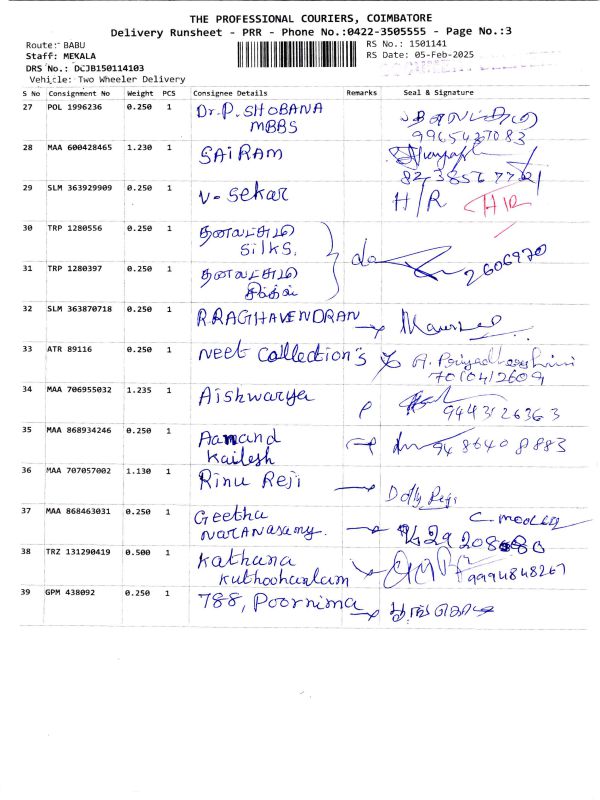 THE PROFESSIONAL COURIERS, COIMBATORE
Delivery Runsheet - PRR - Phone No.:0422-3505555 - Page No.:3
Route: BABU
RS No.: 1501141
Staff: MEKALA
RS Date: 05-Feb-2025
DRS No.: DCJB150114103
Vehicle: Two Wheeler Delivery
S No Consignment No Weight PCS Consignee Details Remarks Seal & Signature
27 POL 1996236 0.250 1 Dr.P. SHOBANA
MBBS
9965437083
28 MAA 600428465 1.230 1 SAIRAM
29 SLM 363929909 0.250 1 V. Sekar H/R H/R
30 TRP 1280556 0.250 1 தனலட்சுமி
Silks.
2606970
31 TRP 1280397 0.250 1 தனலட்சுமி
32 SLM 363870718 0.250 1 R.RAGHAVENDRAN
33 ATR 89116 0.250 1 neet Collection's A. Priyadharshini
7010412609
34 MAA 706955032 1.235 1 Aishwarya
9443126363
35 MAA 868934246 0.250 1 Aanand 9486408883
Kailesh
36 MAA 707057002 1.130 1 Rinu Reji Dolly Reji
37 MAA 868463031 0.250 1 Geetha
Naranasamy.
38 TRZ 131290419 0.500 1 Kathana
Kuthoohualam 9994848267
39 GPM 438092 0.250 1 788, Poornima